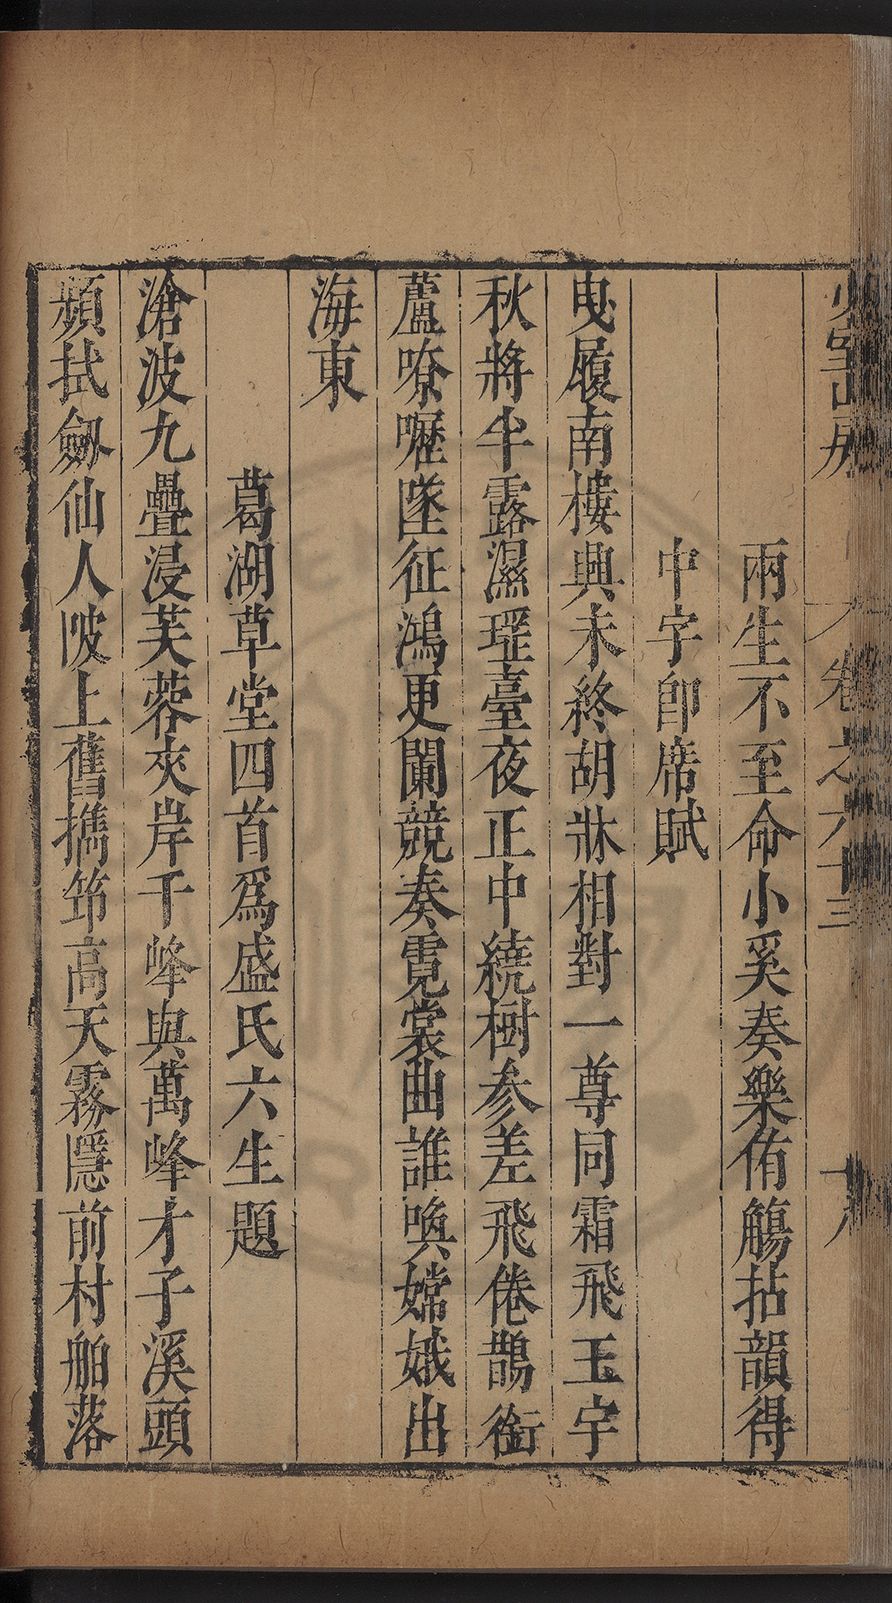 少室山房 卷之六十三 十八
兩生不至命小奚奏樂侑觴拈韻得
中字卽席賦
曳履南樓興未終胡牀相對一尊同霜飛玉宇
秋將半露濕瑤臺夜正中繞樹参差飛倦鵲銜
蘆嘹嚦墜征鴻更闌競奏霓裳曲誰喚嫦娥出
海東
葛湖草堂四首爲盛氏六生題
滄波九疊浸芙蓉夾岸千峰與萬峰才子溪頭
頻拭劒仙人陂上舊擕筇高天霧隱前村舶落